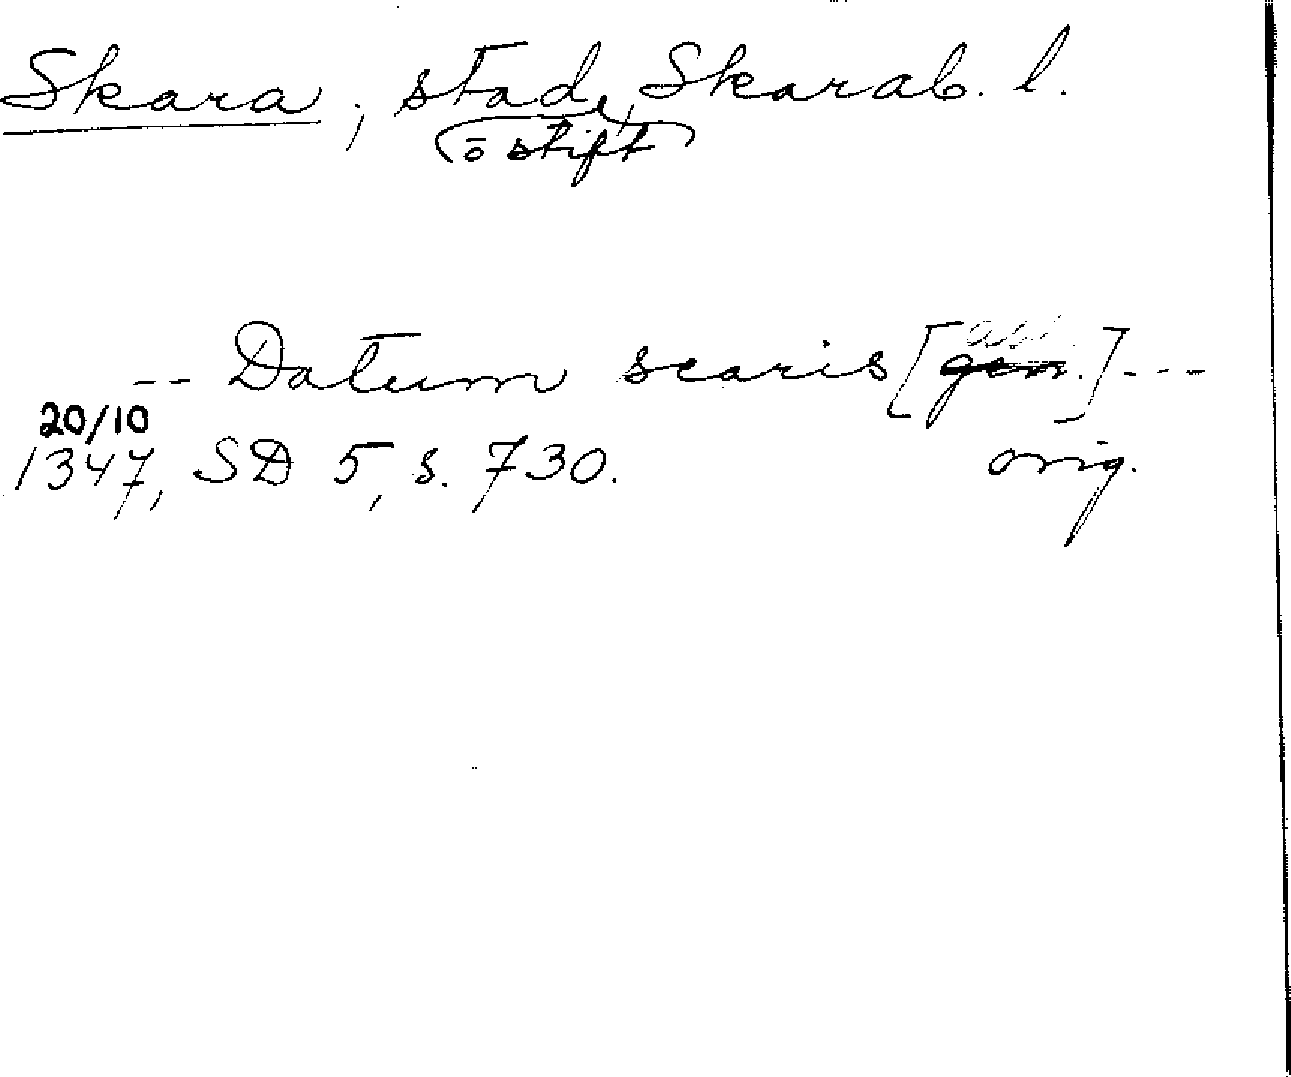 Skara, stad, Skarab. l.
ō stift
-- Datum scaris [abl. gen.] ---
20/10
1347, SD 5, s. 730. orig.